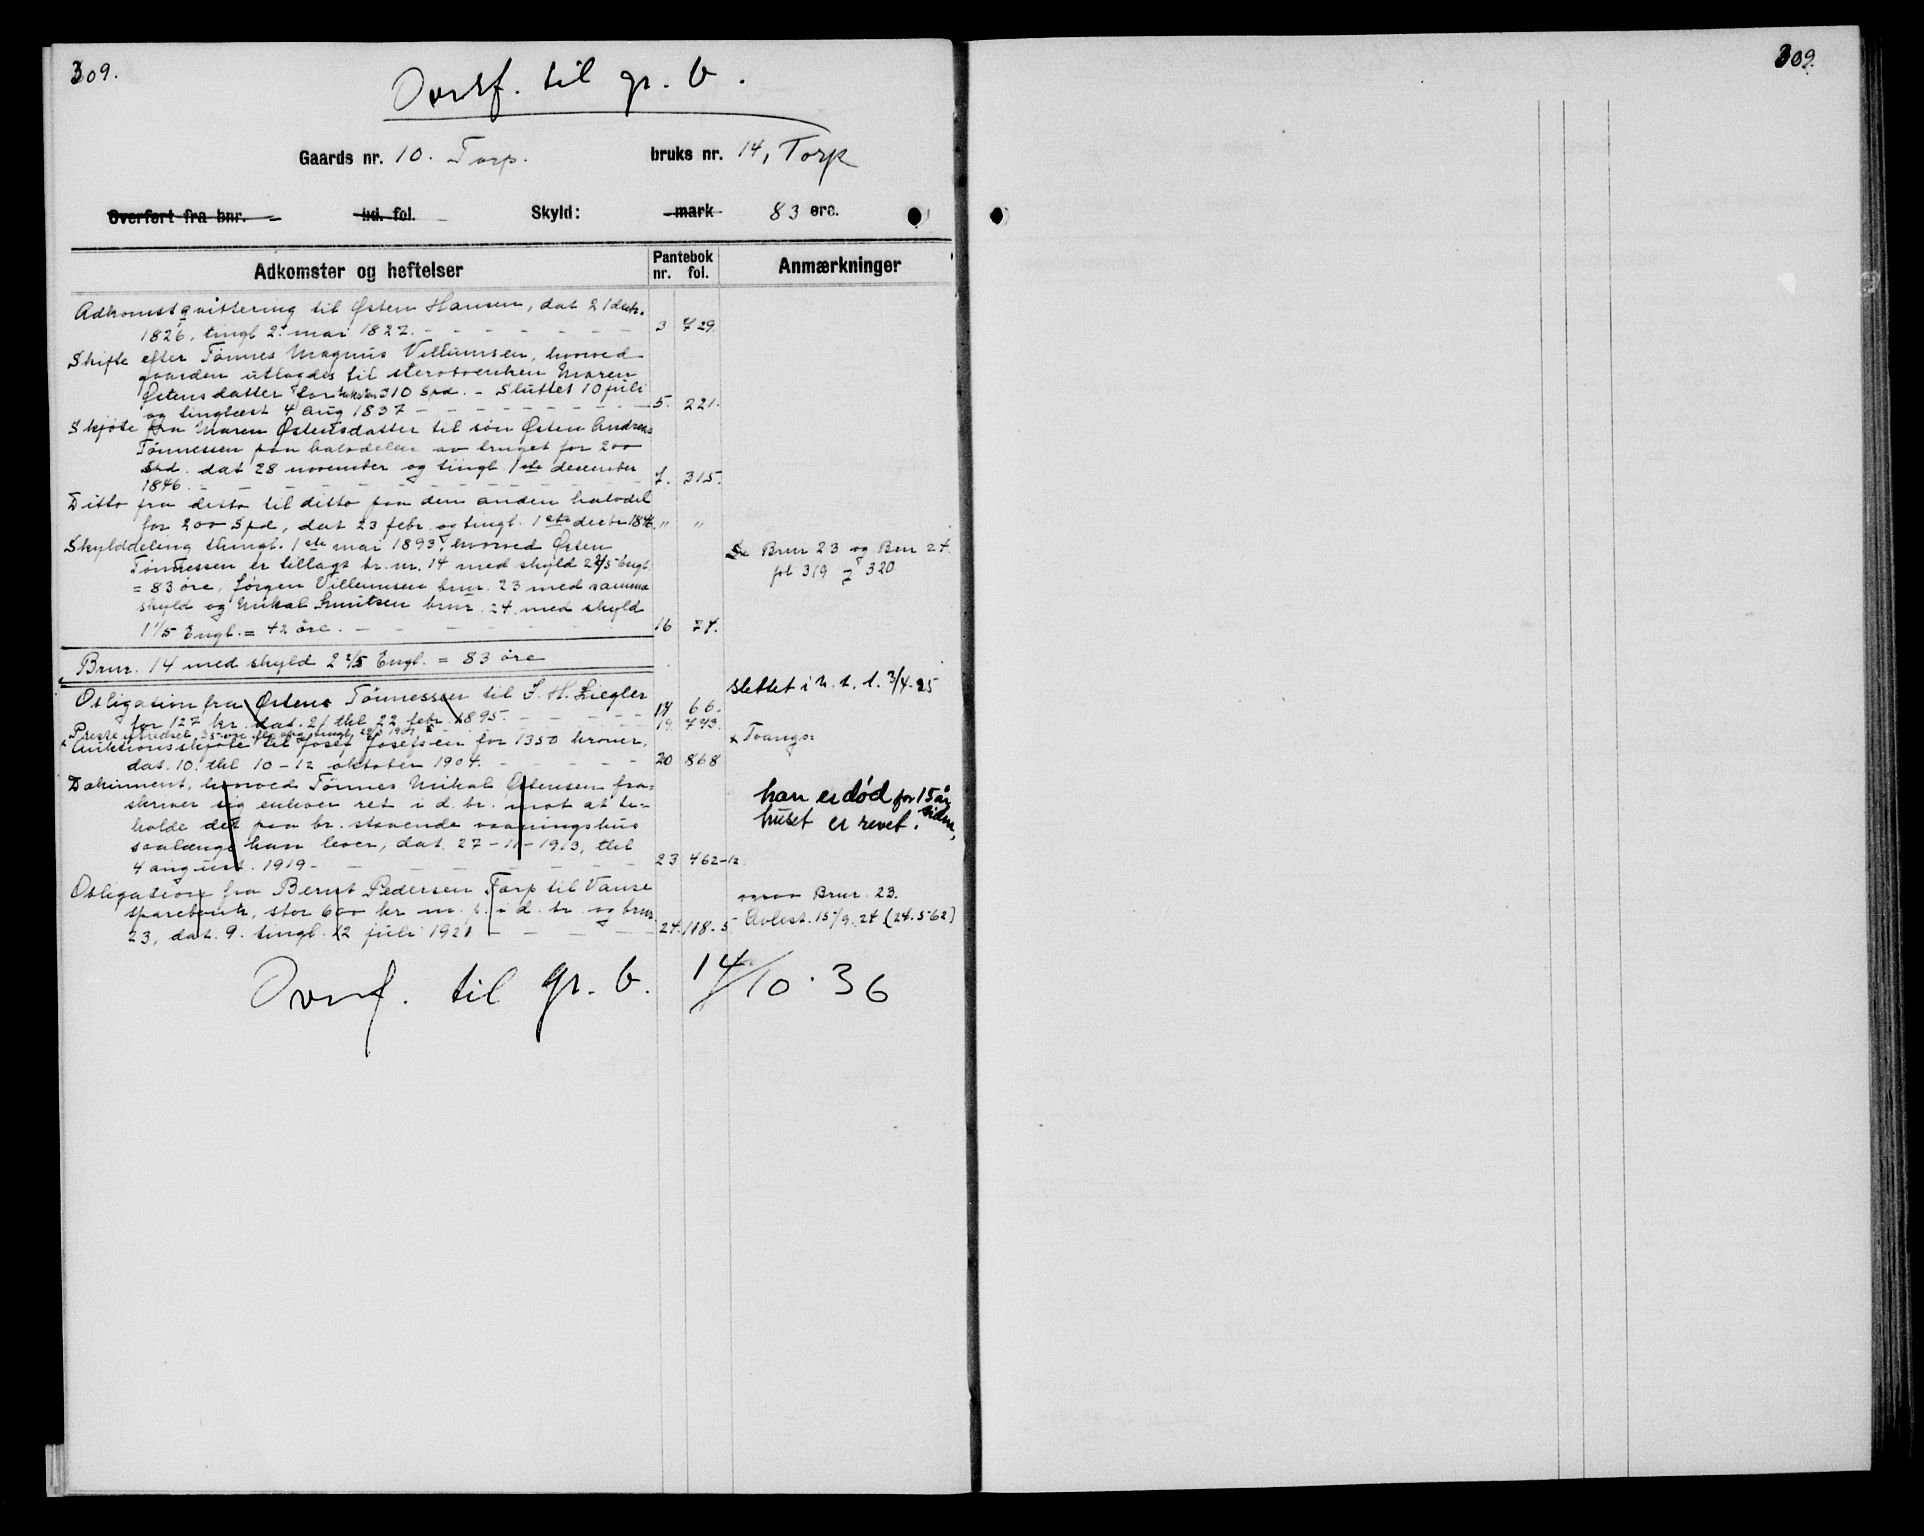 309.
Overf. til gr. b.
Gaards nr. 10. Torp. bruks nr. 14, Torp
Overført fra bnr. bd. fol. Skyld: mark 83 øre.
Adkomster og heftelser Pantebok nr. fol. Anmærkninger
Adkomstqvittering til Østen Hansen, dat 21 dec.
1826, tingl 2. mai 1827. 3 729.
Skifte efter Tønnes Magnus Villumsen, hvorved
gaarden utlagdes til sterbøenken Maren
Østensdatter for 310 Spd. - Sluttet 10 juli
og tinglæst 4 aug 1837 5. 221.
Skjøte fra Maren Østensdatter til søn Østen Andreas
Tønnessen paa halvdelen av bruget for 200
Spd. dat 28 november og tingl. 1ste december
1846. 7. 315.
Ditto fra ditto til ditto paa den anden halvdel
for 200 Spd, dat 23 febr. og tingl. 1ste decbr 1846. " "
Skylddeling tingl. 1ste mai 1893, hvorved Østen
Tønnessen er tillagt br. nr. 14 med skyld 2 2/5 Engl.
= 83 øre, Jørgen Villumsen brnr. 23 med samme
skyld og Mikal Knutsen brnr. 24 med skyld
1 1/5 Engl. = 42 øre. 16 74.
Se Brnr 23 og Bnr 24.
fol 319 & 320
Brnr. 14 med skyld 2 2/5 Engl. = 83 øre
Obligation fra Østen Tønnessen til J. H. Ziegler
for 127 kr. dat. 21 thl 22 febr. 1895. 17 66.
slettet i h. t. l. 3/4.95
19. 743.
x Auktionsskjøte til Josef Josefsen for 1350 kroner,
dat. 10. thl 10-12 oktober 1904. 20 868
x Tvangs=
Dokument, hvorved Tønnes Mikal Østensen fra=
skriver sig enhver ret i d. br. mot at be=
holde det paa br. staaende vaaningshus
saalænge han lever, dat. 27-11-1913, thl
4 august. 1919- 23 462-12.
han er død for 15 år
siden,
huset er revet.
Obligation fra Bernt Pedersen Torp til Vanse
sparebank, stor 600 kr m. p. i d. br. og brnr
23, dat. 9. tingl. 12 juli 1921 24. 118.5
ogsaa Brnr. 23.
Avlest. 15/9. 24 (24.562)
Overf. til gr. b. 14/10.36
309.